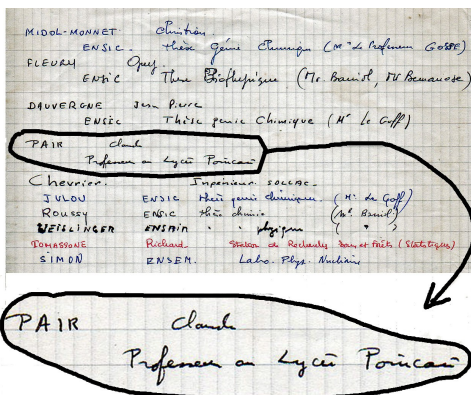 MIDOL-MONNET Christian
ENSIC. Thèse Génie Chimique (Mr Le Professeur GOSSE)
FLEURY Guy.
ENSIC Thèse (Mr.
DAUVERGNE Jean Pierre
ENSIC Thèse génie Chimique (Mr Le Goff)
PAIR Claude
Professeur au Lycée Poincaré
Chevrier. Ingénieur SOLLAC.
JULOU ENSIC thèse génie chimique. (Mr Le Goff)
Roussy ENSIC thèse chimie (Mr.
WEISLINGER ENSAIN " " physique ( " )
TOMASSONE Richard Station de Recherches Eaux et Forêts (Statistiques)
SIMON ENSEM. Labo. Phys. Nucléaire
PAIR Claude
Professeur au Lycée Poincaré